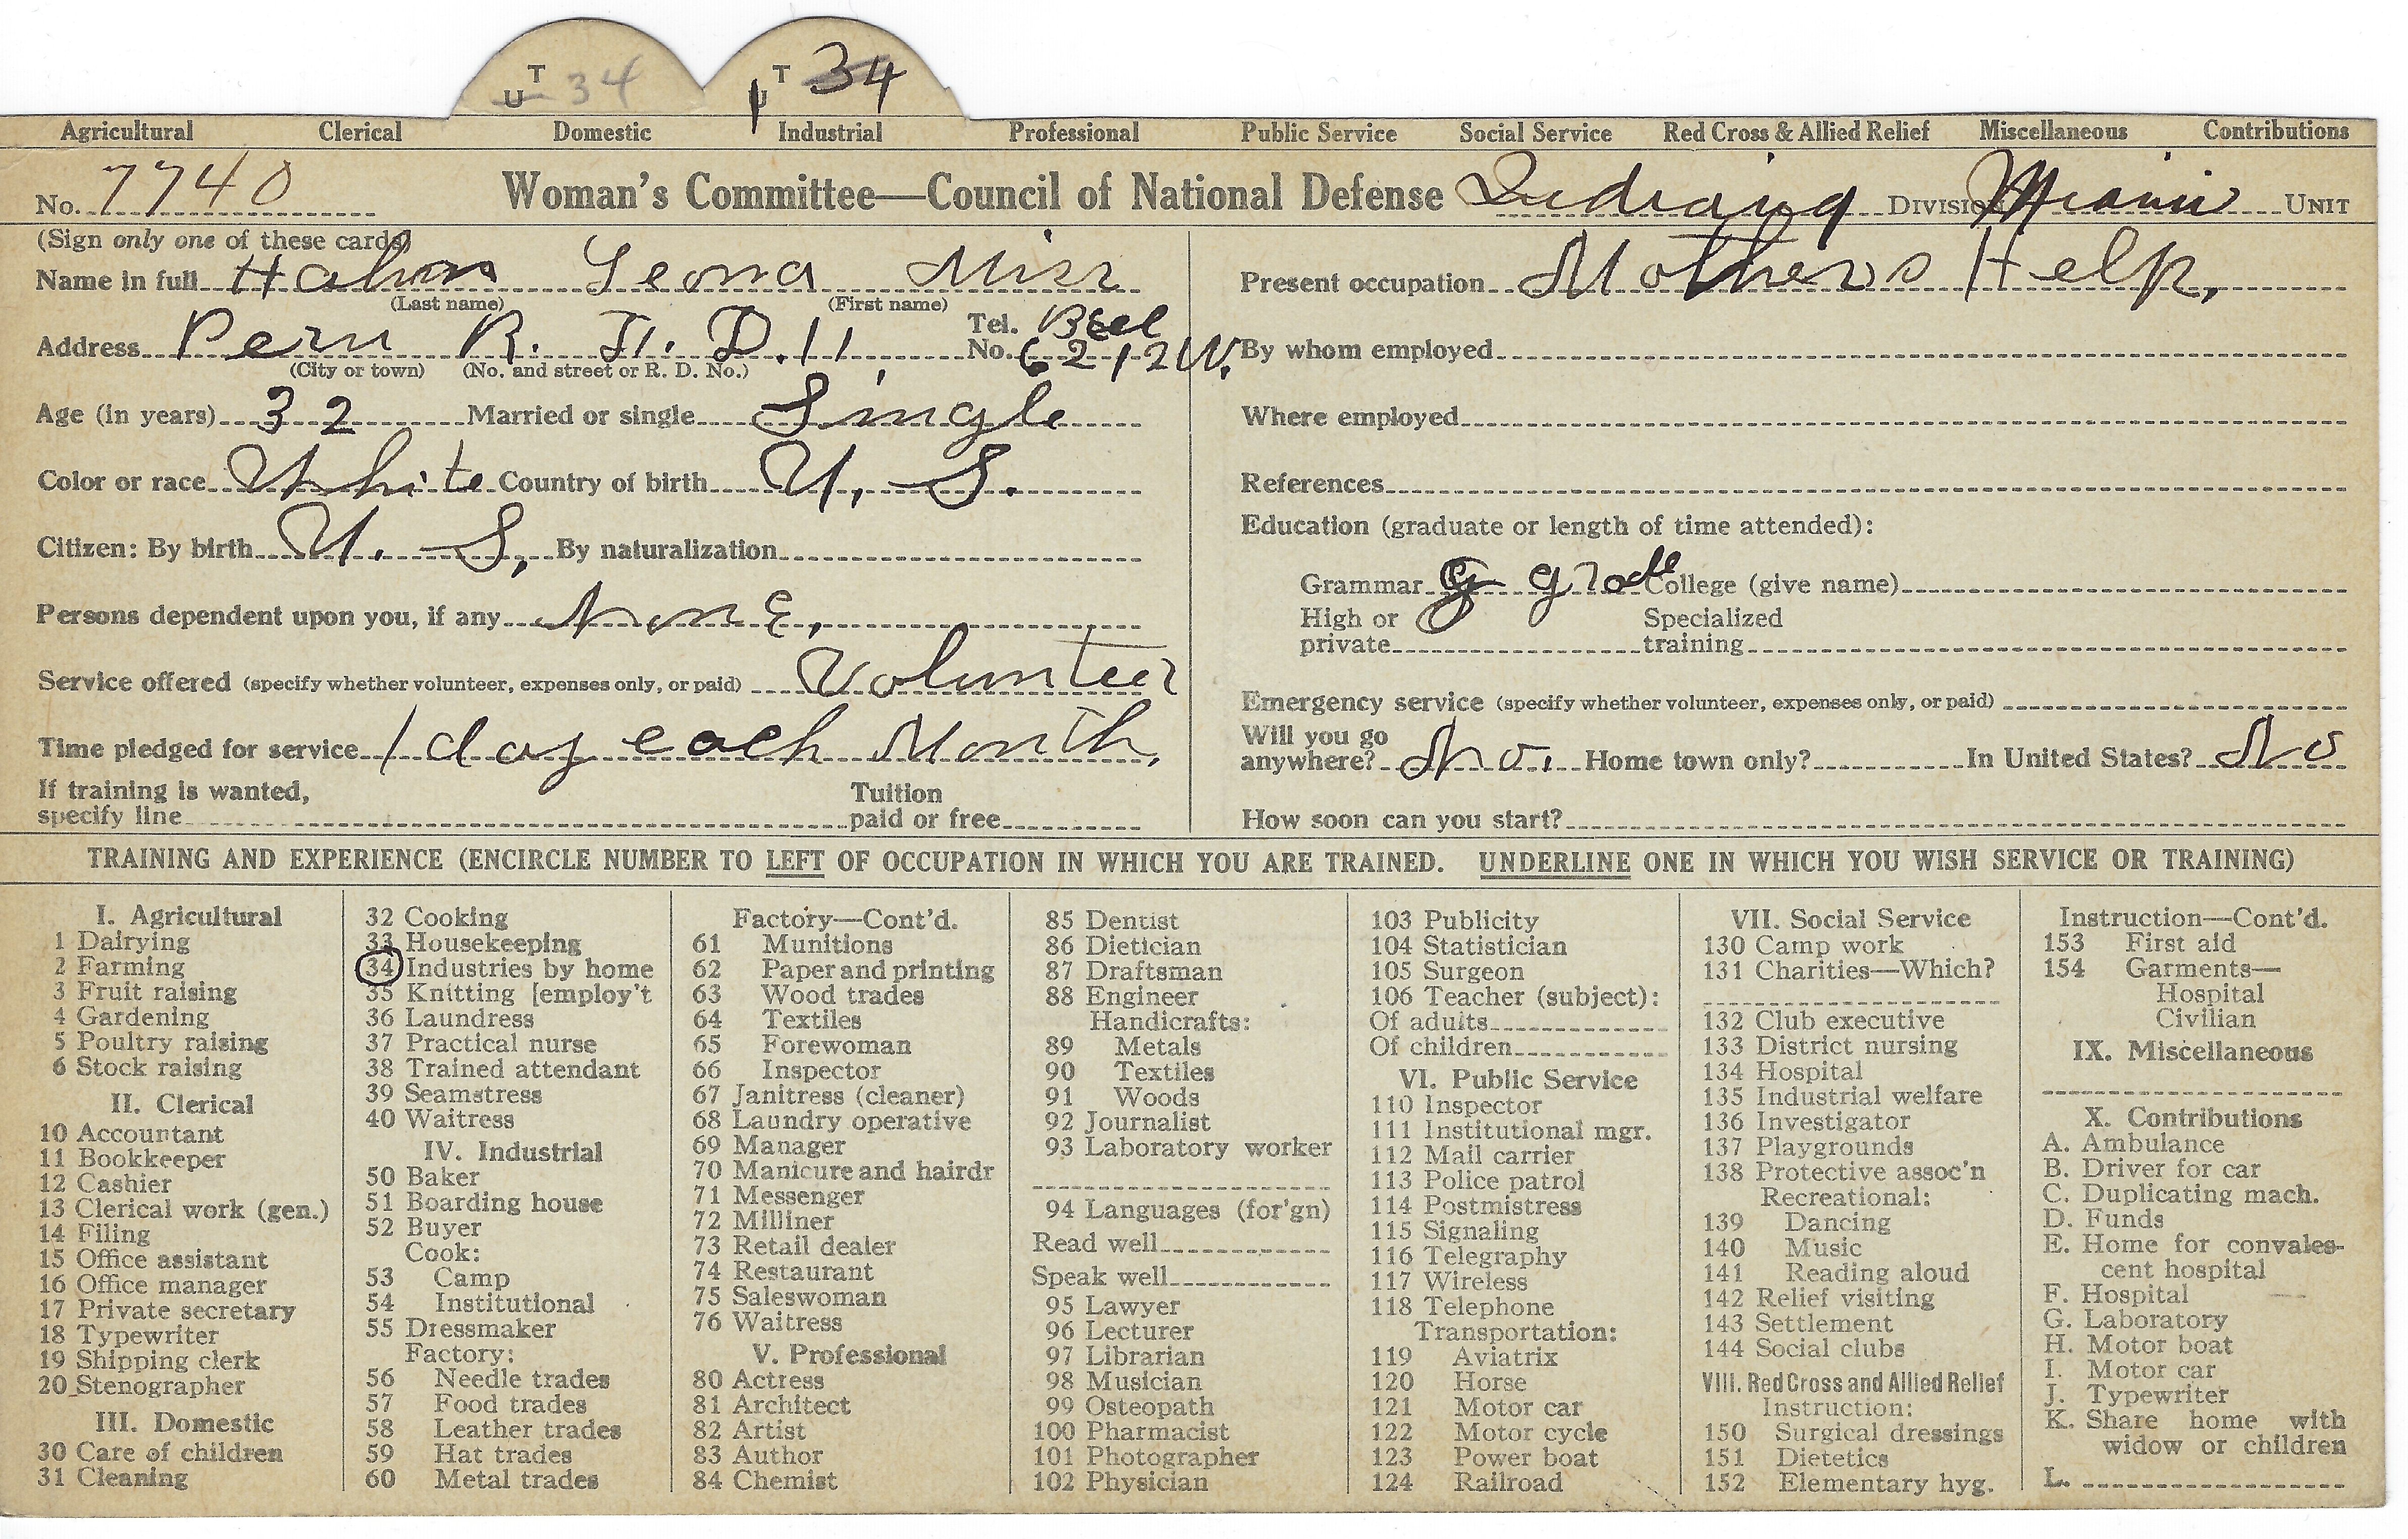 T 34 T 34
U U
Agricultural Clerical Domestic Industrial Professional Public Service Social Service Red Cross & Allied Relief Miscellaneous Contributions
No. 7740 Woman's Committee—Council of National Defense Indiana DIVISION Miami UNIT
(Sign only one of these cards)
Name in full Hahn Leona Miss
(Last name) (First name)
Address Peru R. F. D. 11 Tel. No. Bell 6212W.
(City or town) (No. and street or R. D. No.)
Age (in years) 32 Married or single Single
Color or race White Country of birth U. S.
Citizen: By birth U. S, By naturalization
Persons dependent upon you, if any None,
Service offered (specify whether volunteer, expenses only, or paid) Volunteer
Time pledged for service 1 day each Month,
If training is wanted, specify line Tuition paid or free
Present occupation Mothers Help,
By whom employed
Where employed
References
Education (graduate or length of time attended):
Grammar 8 grade College (give name)
High or private Specialized training
Emergency service (specify whether volunteer, expenses only, or paid)
Will you go anywhere? No. Home town only? In United States? No
How soon can you start?
TRAINING AND EXPERIENCE (ENCIRCLE NUMBER TO LEFT OF OCCUPATION IN WHICH YOU ARE TRAINED. UNDERLINE ONE IN WHICH YOU WISH SERVICE OR TRAINING)
I. Agricultural
1 Dairying
2 Farming
3 Fruit raising
4 Gardening
5 Poultry raising
6 Stock raising
II. Clerical
10 Accountant
11 Bookkeeper
12 Cashier
13 Clerical work (gen.)
14 Filing
15 Office assistant
16 Office manager
17 Private secretary
18 Typewriter
19 Shipping clerk
20 Stenographer
III. Domestic
30 Care of children
31 Cleaning
32 Cooking
33 Housekeeping
34 Industries by home
35 Knitting [employ't
36 Laundress
37 Practical nurse
38 Trained attendant
39 Seamstress
40 Waitress
IV. Industrial
50 Baker
51 Boarding house
52 Buyer
Cook:
53 Camp
54 Institutional
55 Dressmaker
Factory:
56 Needle trades
57 Food trades
58 Leather trades
59 Hat trades
60 Metal trades
Factory—Cont'd.
61 Munitions
62 Paper and printing
63 Wood trades
64 Textiles
65 Forewoman
66 Inspector
67 Janitress (cleaner)
68 Laundry operative
69 Manager
70 Manicure and hairdr
71 Messenger
72 Milliner
73 Retail dealer
74 Restaurant
75 Saleswoman
76 Waitress
V. Professional
80 Actress
81 Architect
82 Artist
83 Author
84 Chemist
85 Dentist
86 Dietician
87 Draftsman
88 Engineer
Handicrafts:
89 Metals
90 Textiles
91 Woods
92 Journalist
93 Laboratory worker
94 Languages (for'gn)
Read well
Speak well
95 Lawyer
96 Lecturer
97 Librarian
98 Musician
99 Osteopath
100 Pharmacist
101 Photographer
102 Physician
103 Publicity
104 Statistician
105 Surgeon
106 Teacher (subject):
Of adults
Of children
VI. Public Service
110 Inspector
111 Institutional mgr.
112 Mail carrier
113 Police patrol
114 Postmistress
115 Signaling
116 Telegraphy
117 Wireless
118 Telephone
Transportation:
119 Aviatrix
120 Horse
121 Motor car
122 Motor cycle
123 Power boat
124 Railroad
VII. Social Service
130 Camp work
131 Charities—Which?
132 Club executive
133 District nursing
134 Hospital
135 Industrial welfare
136 Investigator
137 Playgrounds
138 Protective assoc'n
Recreational:
139 Dancing
140 Music
141 Reading aloud
142 Relief visiting
143 Settlement
144 Social clubs
VIII. Red Cross and Allied Relief
Instruction:
150 Surgical dressings
151 Dietetics
152 Elementary hyg.
Instruction—Cont'd.
153 First aid
154 Garments—
Hospital
Civilian
IX. Miscellaneous
X. Contributions
A. Ambulance
B. Driver for car
C. Duplicating mach.
D. Funds
E. Home for convales-
cent hospital
F. Hospital
G. Laboratory
H. Motor boat
I. Motor car
J. Typewriter
K. Share home with
widow or children
L.